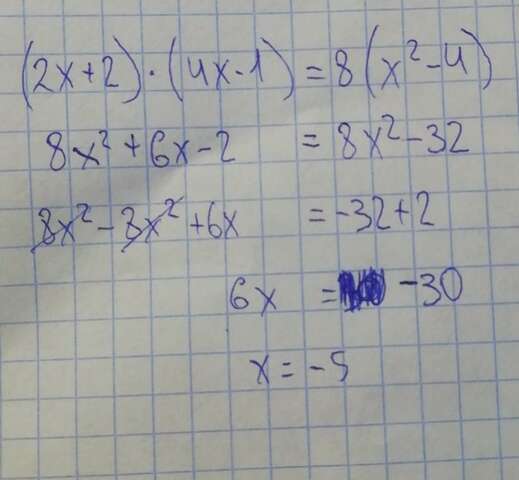 (2x+2)·(4x-1)=8(x²-4)
8x²+6x-2 =8x²-32
8x²-8x²+6x =-32+2
6x = -30
x=-5